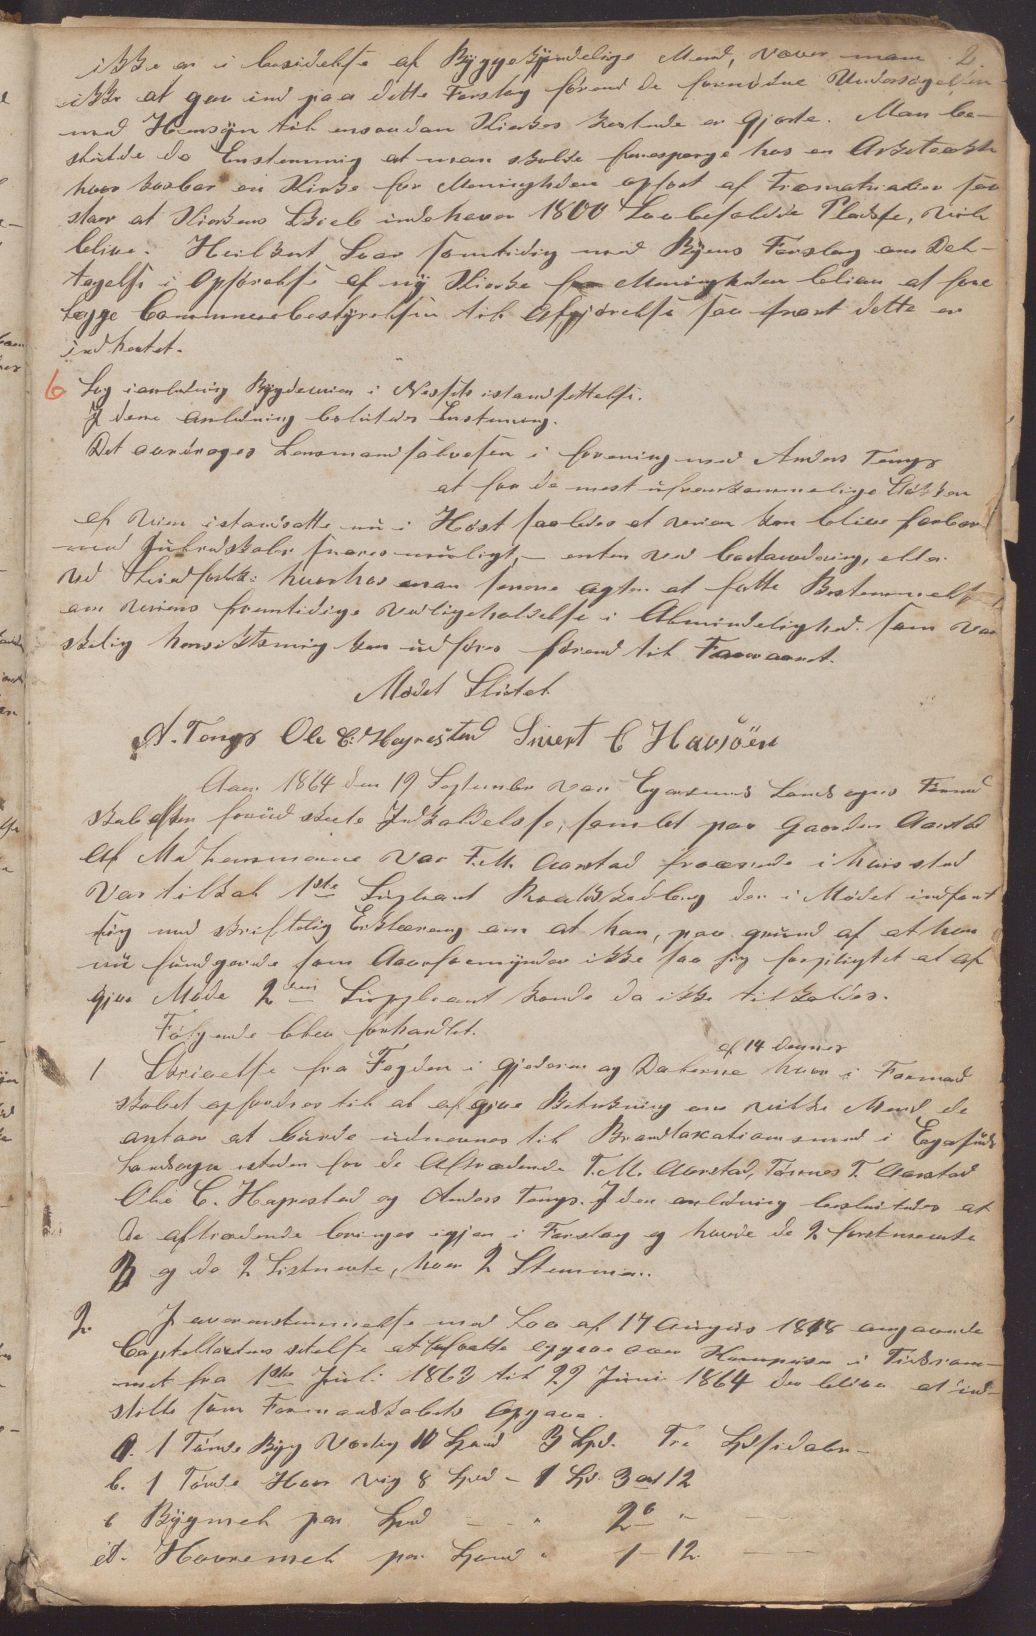 2.
ikke er i besidelse af Byggekyndelige Mænd, vover man
ikke at gaa ind paa dette Forslag førend de fornødne Undersøgelser
med Hensyn til ensaadan Kirkes kostende er gjorte. Man be-
sluttede da Enstemmig at man skulde forespørge hos en Arkitekt
hvor kosbar en Kirke for Menigheden opført af Træmatrialier saa
stor at Kirkens Skieb indehaver 1800 Lovbefaldte Pladse, vil
blive. Hvilket Svar samtidig med Byens Forslag om Del-
tagelse i Opførelse af ny Kirke for Menigheden bliver at fore
legge Communebestyrelsen til Afgjørelse saa snart dette er
indhentet.
6 Sag i anledning Bygdeveien i Nessets istandsettelse.
I dene anledning beslutedes Enstemig.
Det overdrages Lensmand i forening med Anders Tengs
at faa de mest ufremkommelige Stykker
af veien istandsatte nu i Høst saaledes at veien kan blive farbar
med snarest muligt, enten ved eller
ved hvorhos man senere agter at fatte Bestemmelse
om veiens fremtidige vedligeholdelse i Almindelighed. som van
skelig kan udføres førend til Foraaret.
Mødet Slutet
A. Tengs Ole C. Høgrestad Sivert C Havsöen
Aar 1864 den 19 September var Egersunds Landsogns Formand
skab efter forud skeete Indkaldelse, samlet paa Gaarden Aarstad
Af Medlemmerne var T. M. Aarstad fraværende i hvis sted
var tilkalt 1ste Supleant den i Mødet indfant
sig med skriftelig Erklæring om at han, paa grund af at han
nu fungerende som ikke saa sig forpligtet at af
give Møde 2den Suppleant kunde da ikke tilkaldes.
Følgende blev forhandlet.
af 14 dennes
1 Skrivelse fra Fogden i Jæderen og Dalerne hvor i Formand
skabet opfordres til at afgive Betenkning om vilke Mend de
antaar at burde udnevnes til Brandtaxationsmend i Egersunds
Landsogn isteden for de Aftrædende T. M. Aarstad, Tønnes T. Aarstad
Ole C. Høgrestad og Anders Tengs. I den anledning beslutedes at
de aftrædende bringes igjen i Forslag og havde de 2 førstnevnte
3 og de 2 Sistnevnte, hver 2 Stemmer.
2. I overenstemmelse med Lov af 17 August 1818 angaaende
Capiteltaxtens settelse at forfatte opgave over Kornpriser i Tidsrum-
met fra 1ste Juli 1863 til 29 Juni 1864 der bliver at ind-
stille som Formandskabets Opgave.
a. 1 Tønde Byg 10 3 Spd. Tre Spesidaler-
b. 1 Tønde Havre veg 8 - 1 Spd. 3 ort 12
c Bygmel pr. - - " 2 " "
d. Havremel pr. " 1 - 12.